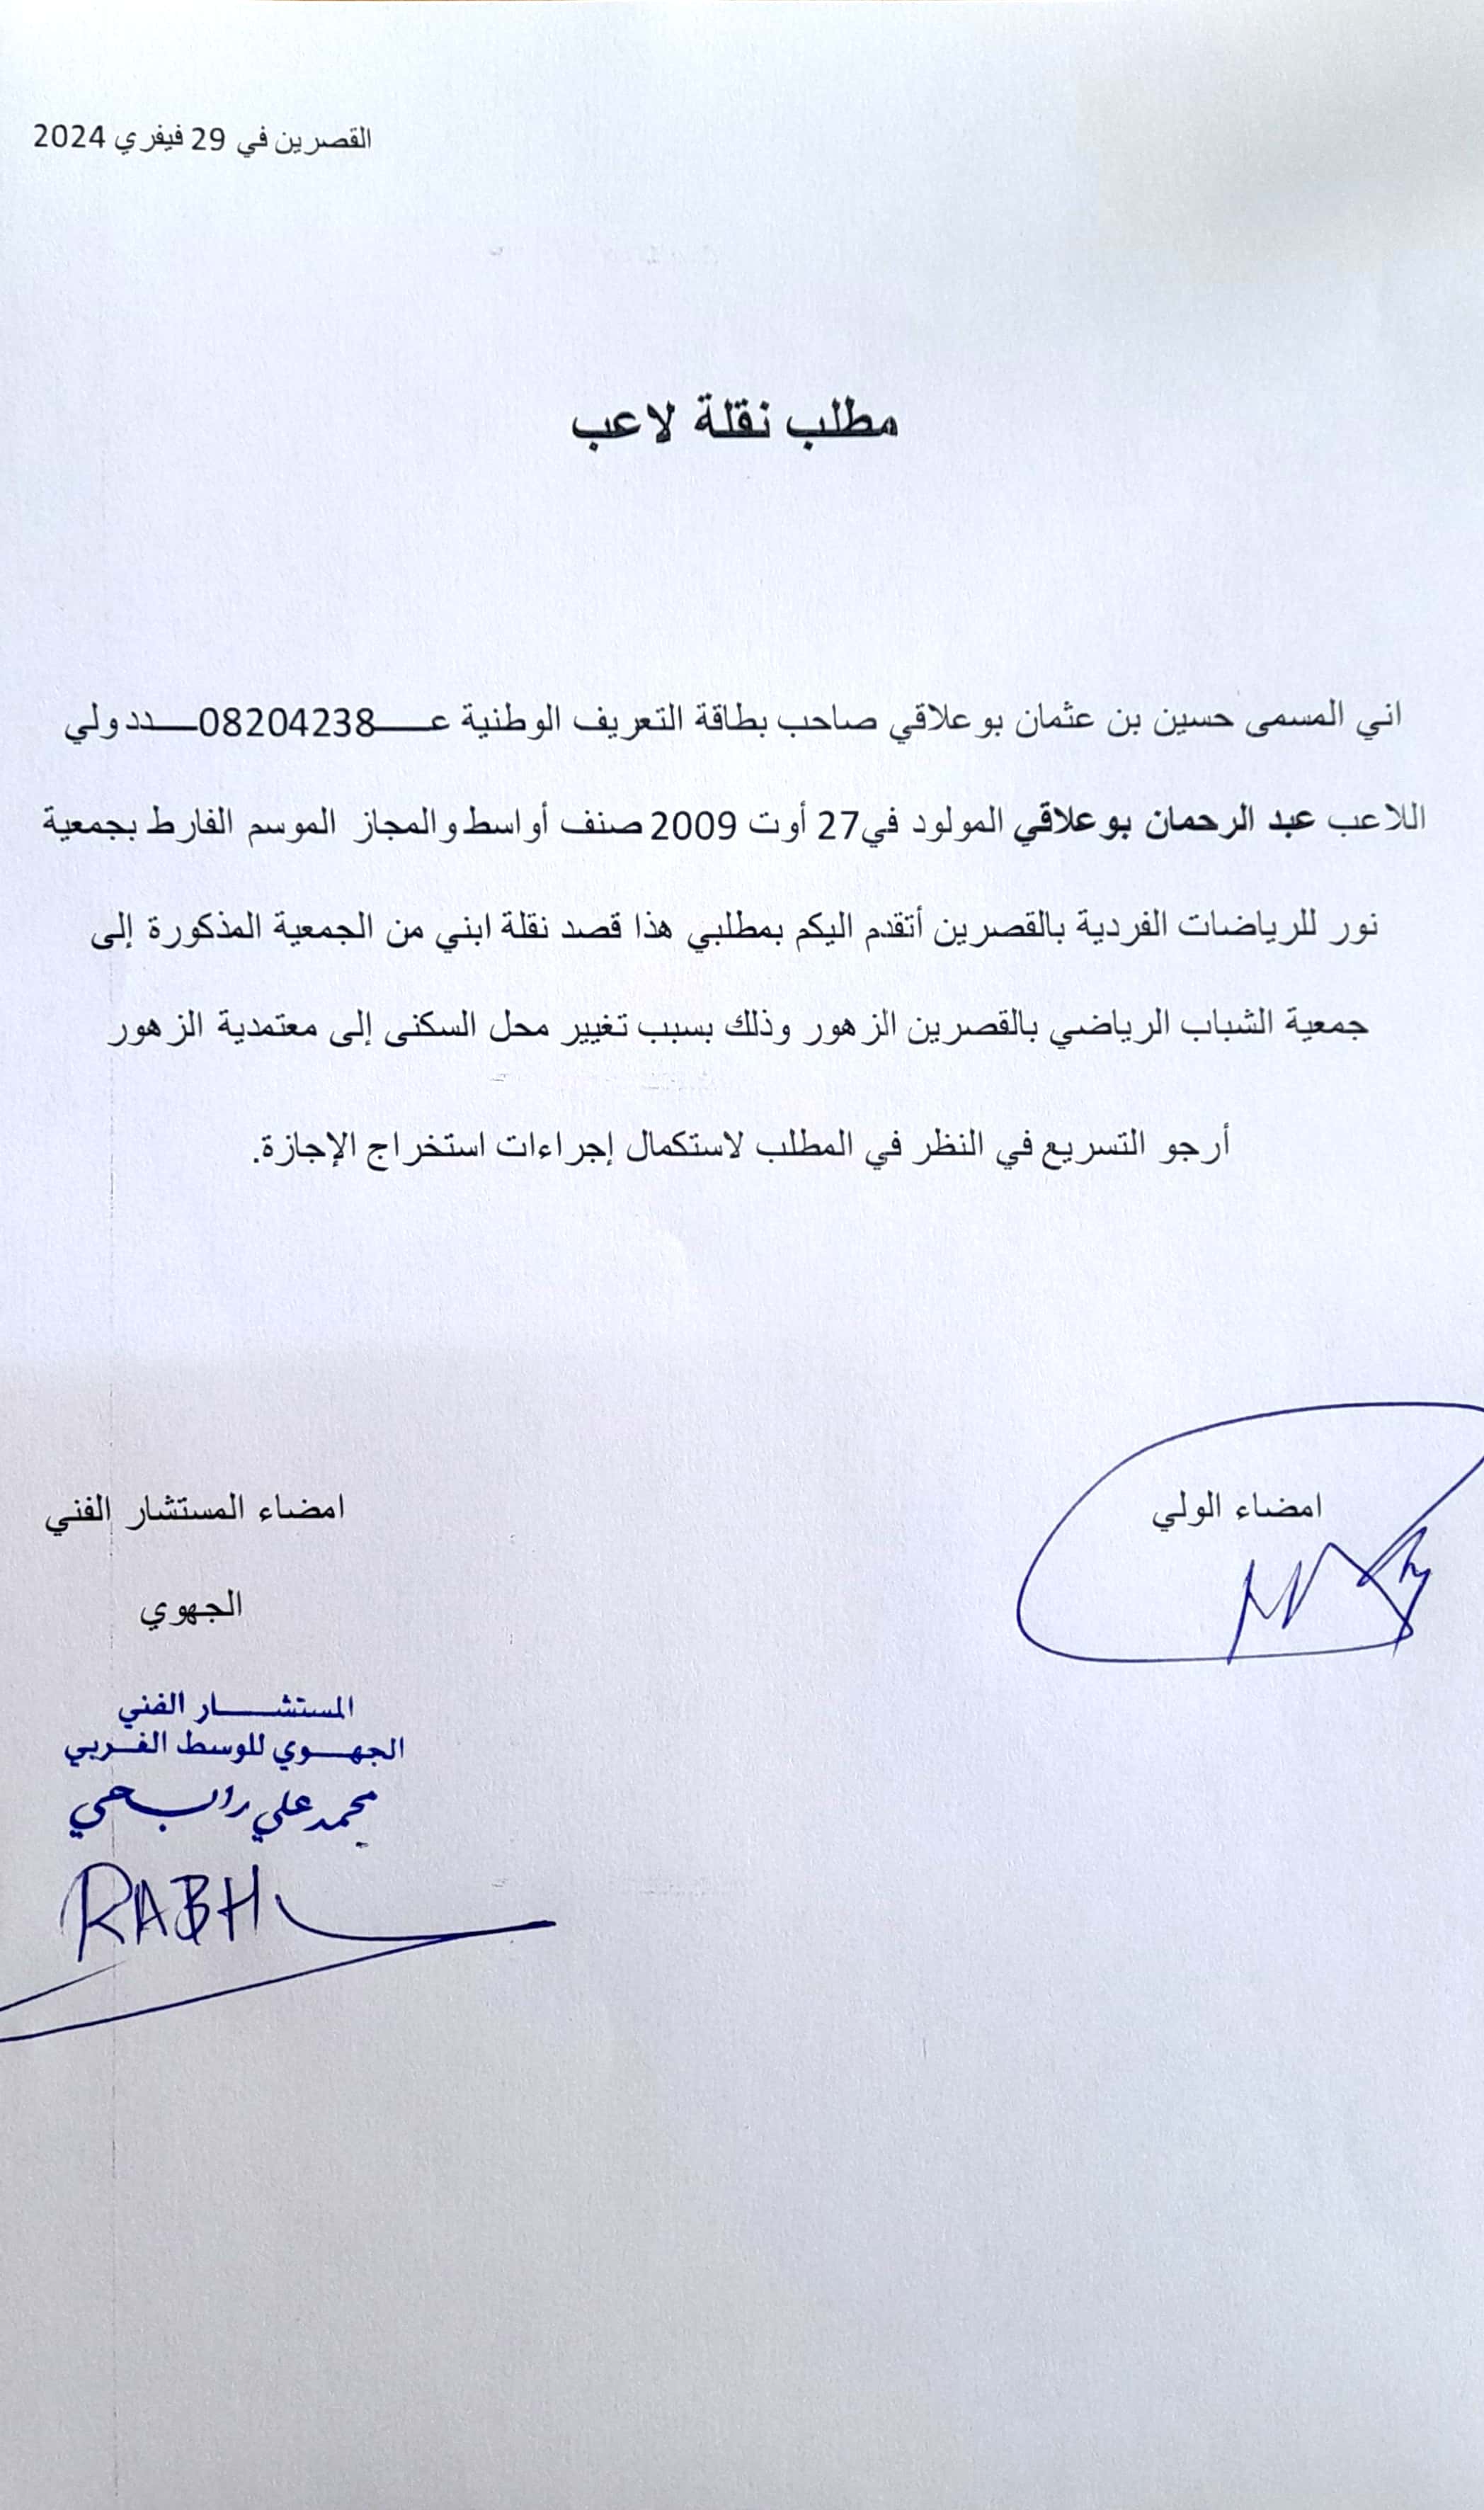 القصرين في 29 فيفري 2024
مطلب نقلة لاعب
اني المسمى حسين بن عثمان بوعلاقي صاحب بطاقة التعريف الوطنية عـــ08204238ـــدد ولي
اللاعب عبد الرحمان بوعلاقي المولود في27 أوت 2009 صنف أواسط والمجاز الموسم الفارط بجمعية
نور للرياضات الفردية بالقصرين أتقدم اليكم بمطلبي هذا قصد نقلة ابني من الجمعية المذكورة إلى
جمعية الشباب الرياضي بالقصرين الزهور وذلك بسبب تغيير محل السكنى إلى معتمدية الزهور
أرجو التسريع في النظر في المطلب لاستكمال إجراءات استخراج الإجازة.
امضاء الولي
امضاء المستشار الفني
الجهوي
المستشـــــار الفني
الجهـــوي للوسط الغـــربي
محمد علي رابـــحي
RABHI